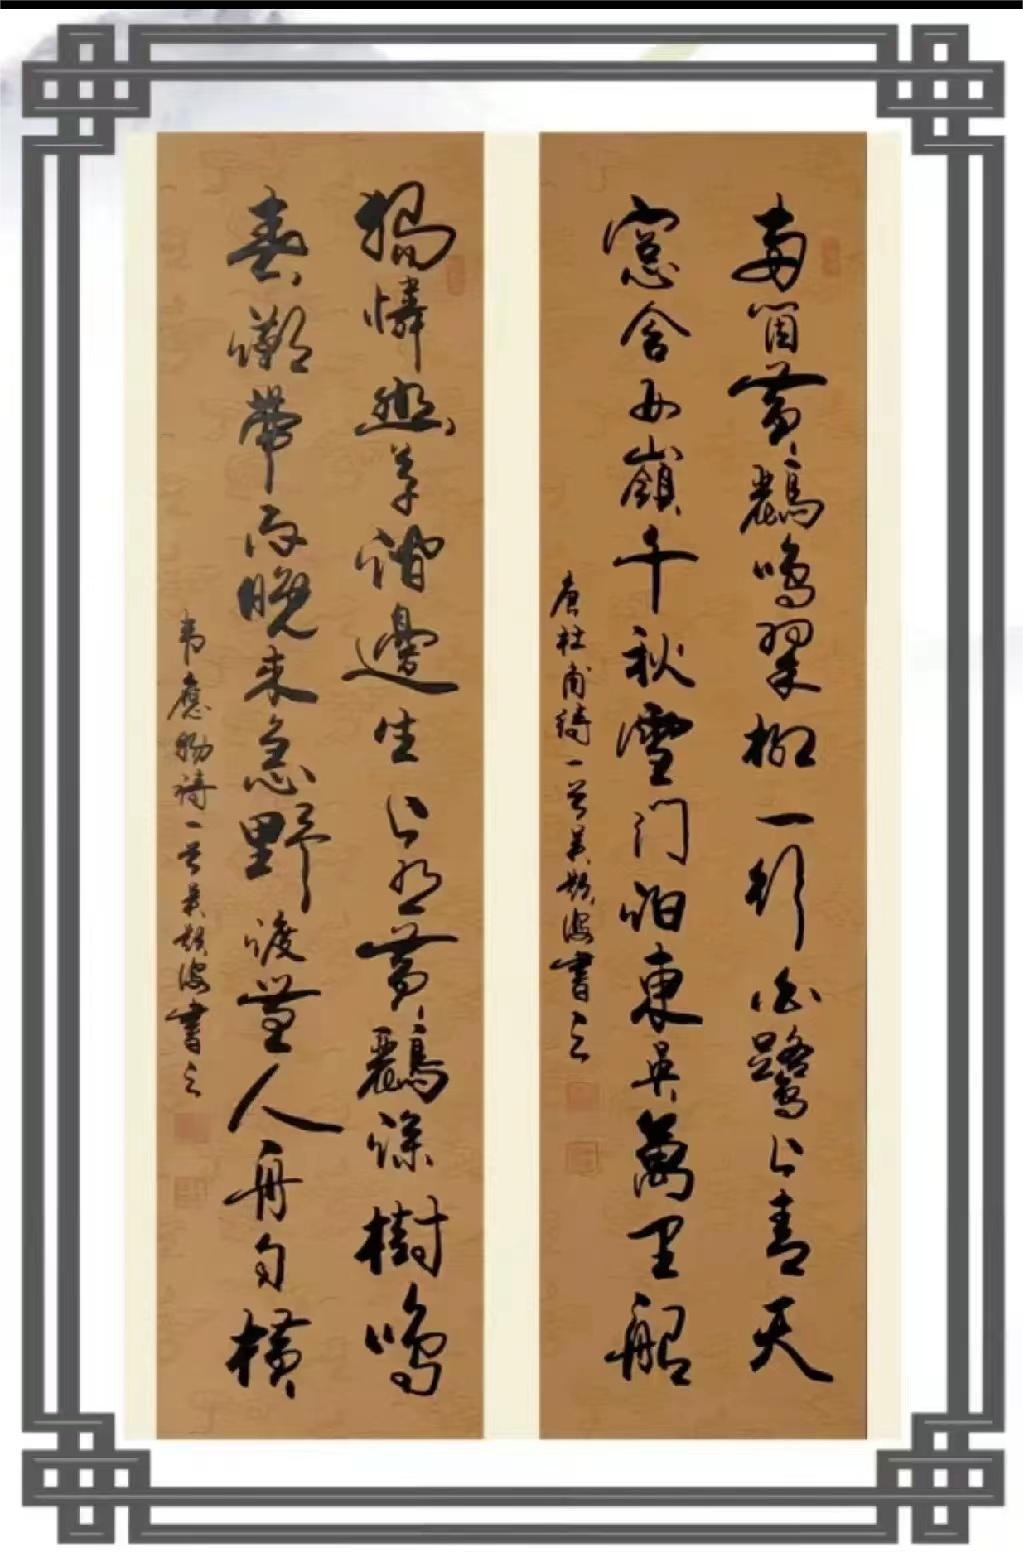 兩箇黄鸝鳴翠柳一行白鷺上青天
窓含西嶺千秋雪门泊東吴萬里船
唐杜甫詩一首吴書之
獨憐幽草澗邊生上有黄鸝深樹鳴
春潮帶雨晚来急野渡無人舟自横
韦應物詩一首吴書之